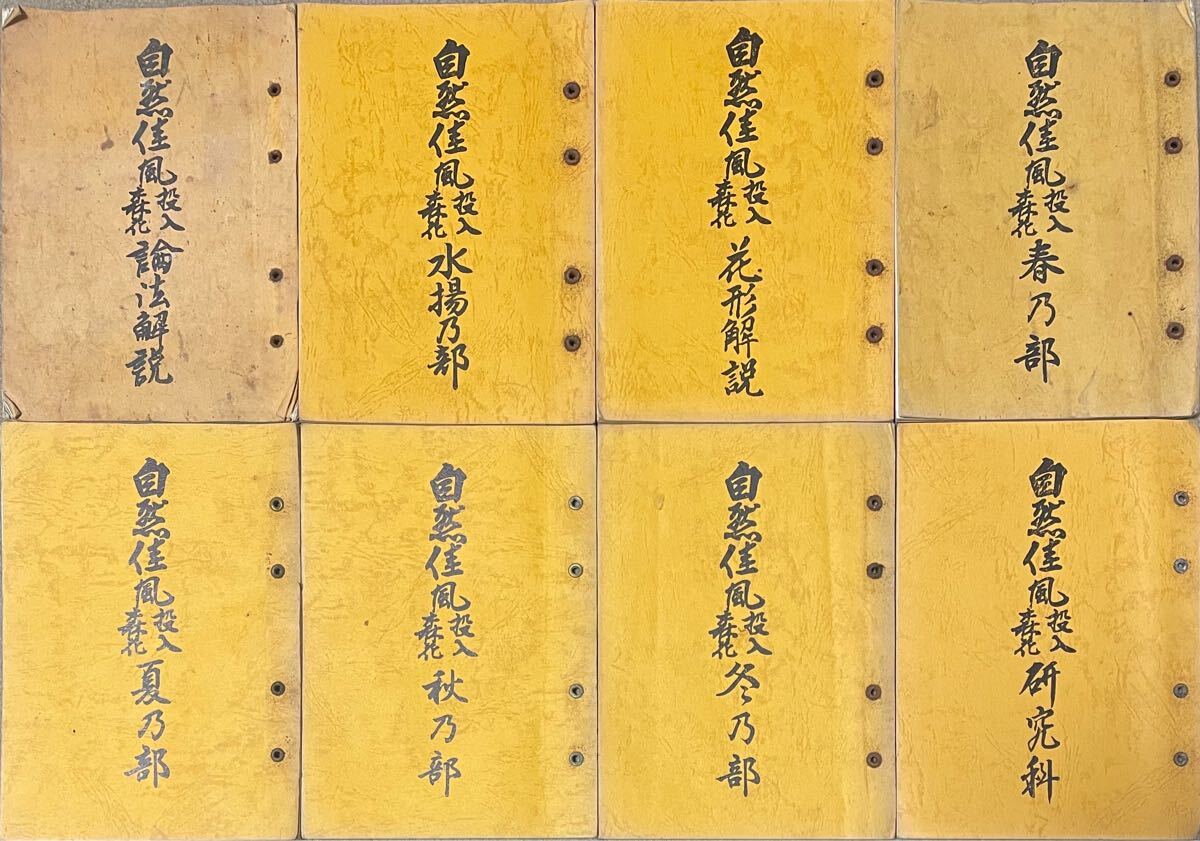 自然佳風投入森花論法解説
自然佳風投入森花水揚乃部
自然佳風投入森花花形解説
自然佳風投入森花春乃部
自然佳風投入森花夏乃部
自然佳風投入森花秋乃部
自然佳風投入森花冬乃部
自然佳風投入森花研究科